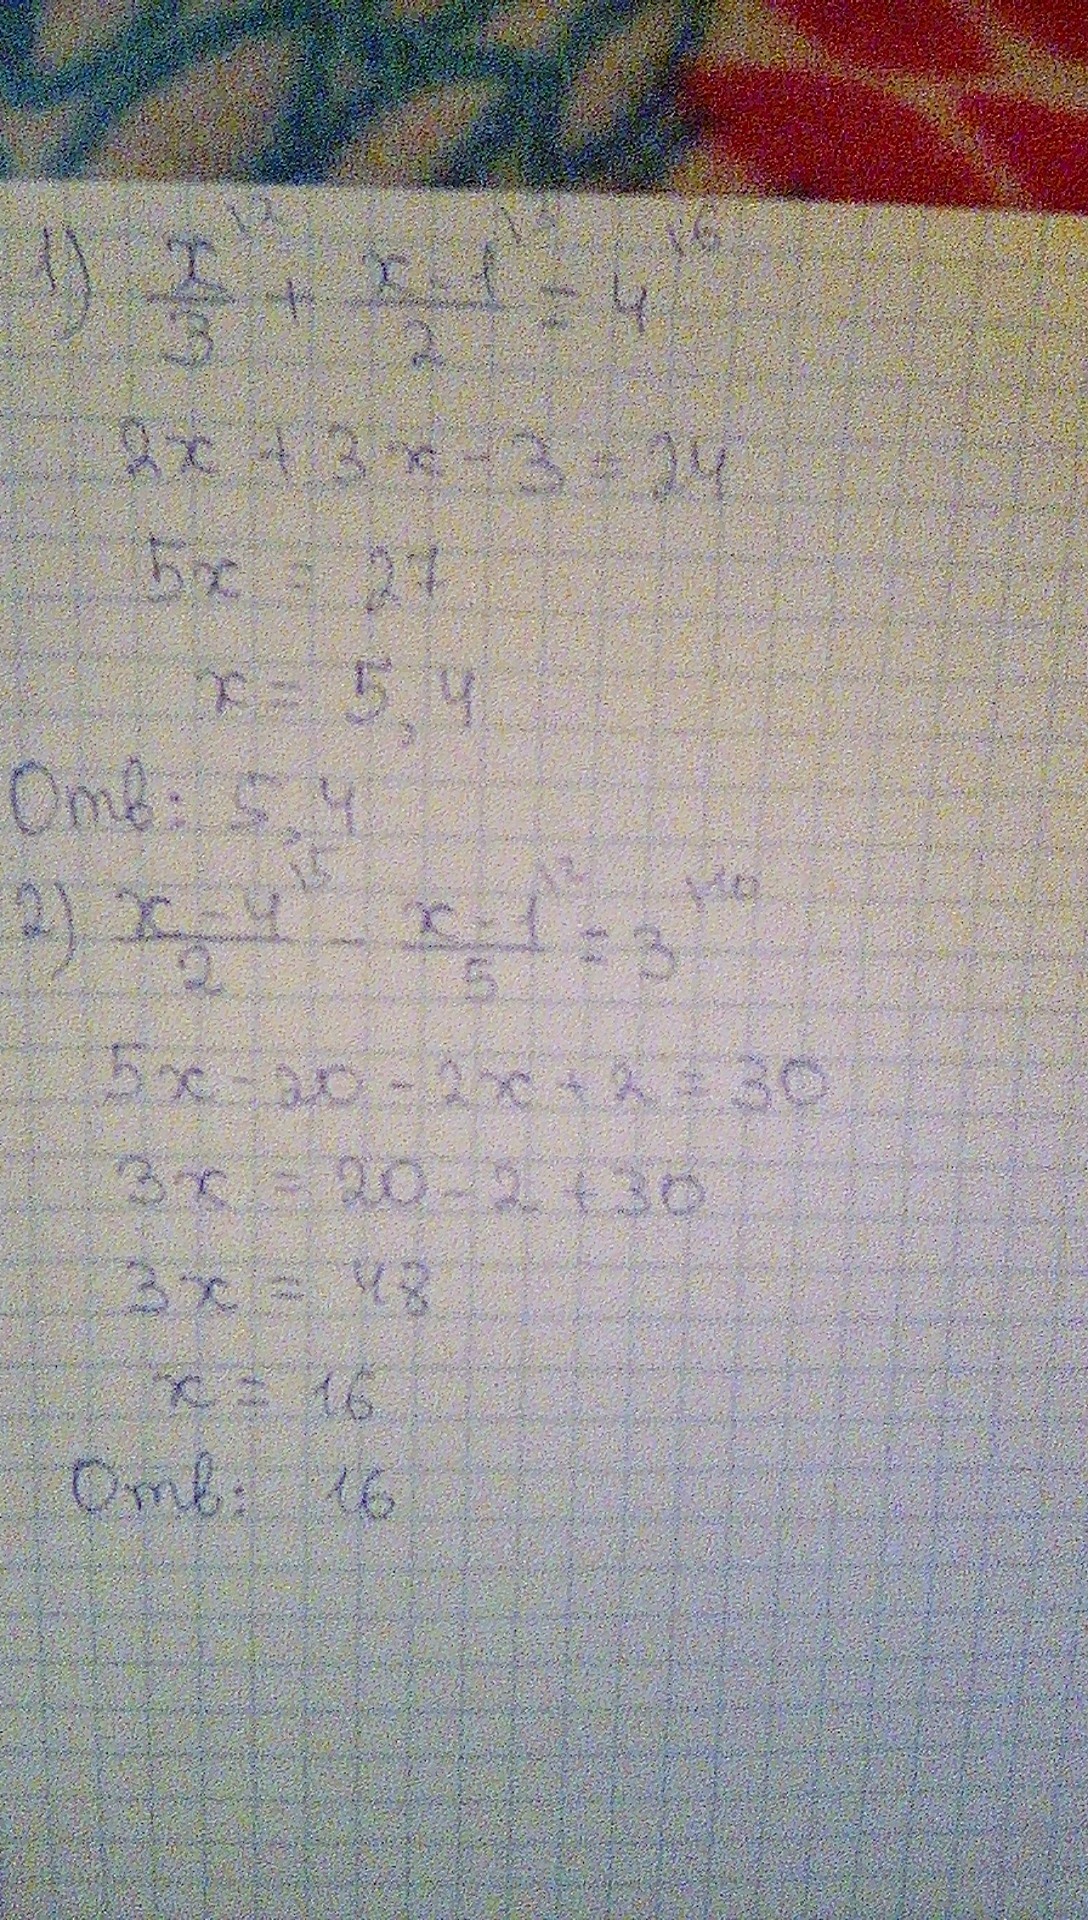 1) x/3 \2 + x-1/2 \3 = 4 \6
2x + 3x - 3 = 24
5x = 27
x = 5,4
Отв: 5,4
2) x-4/2 \5 - x-1/5 \2 = 3 \10
5x - 20 - 2x + 2 = 30
3x = 20 - 2 + 30
3x = 48
x = 16
Отв: 16